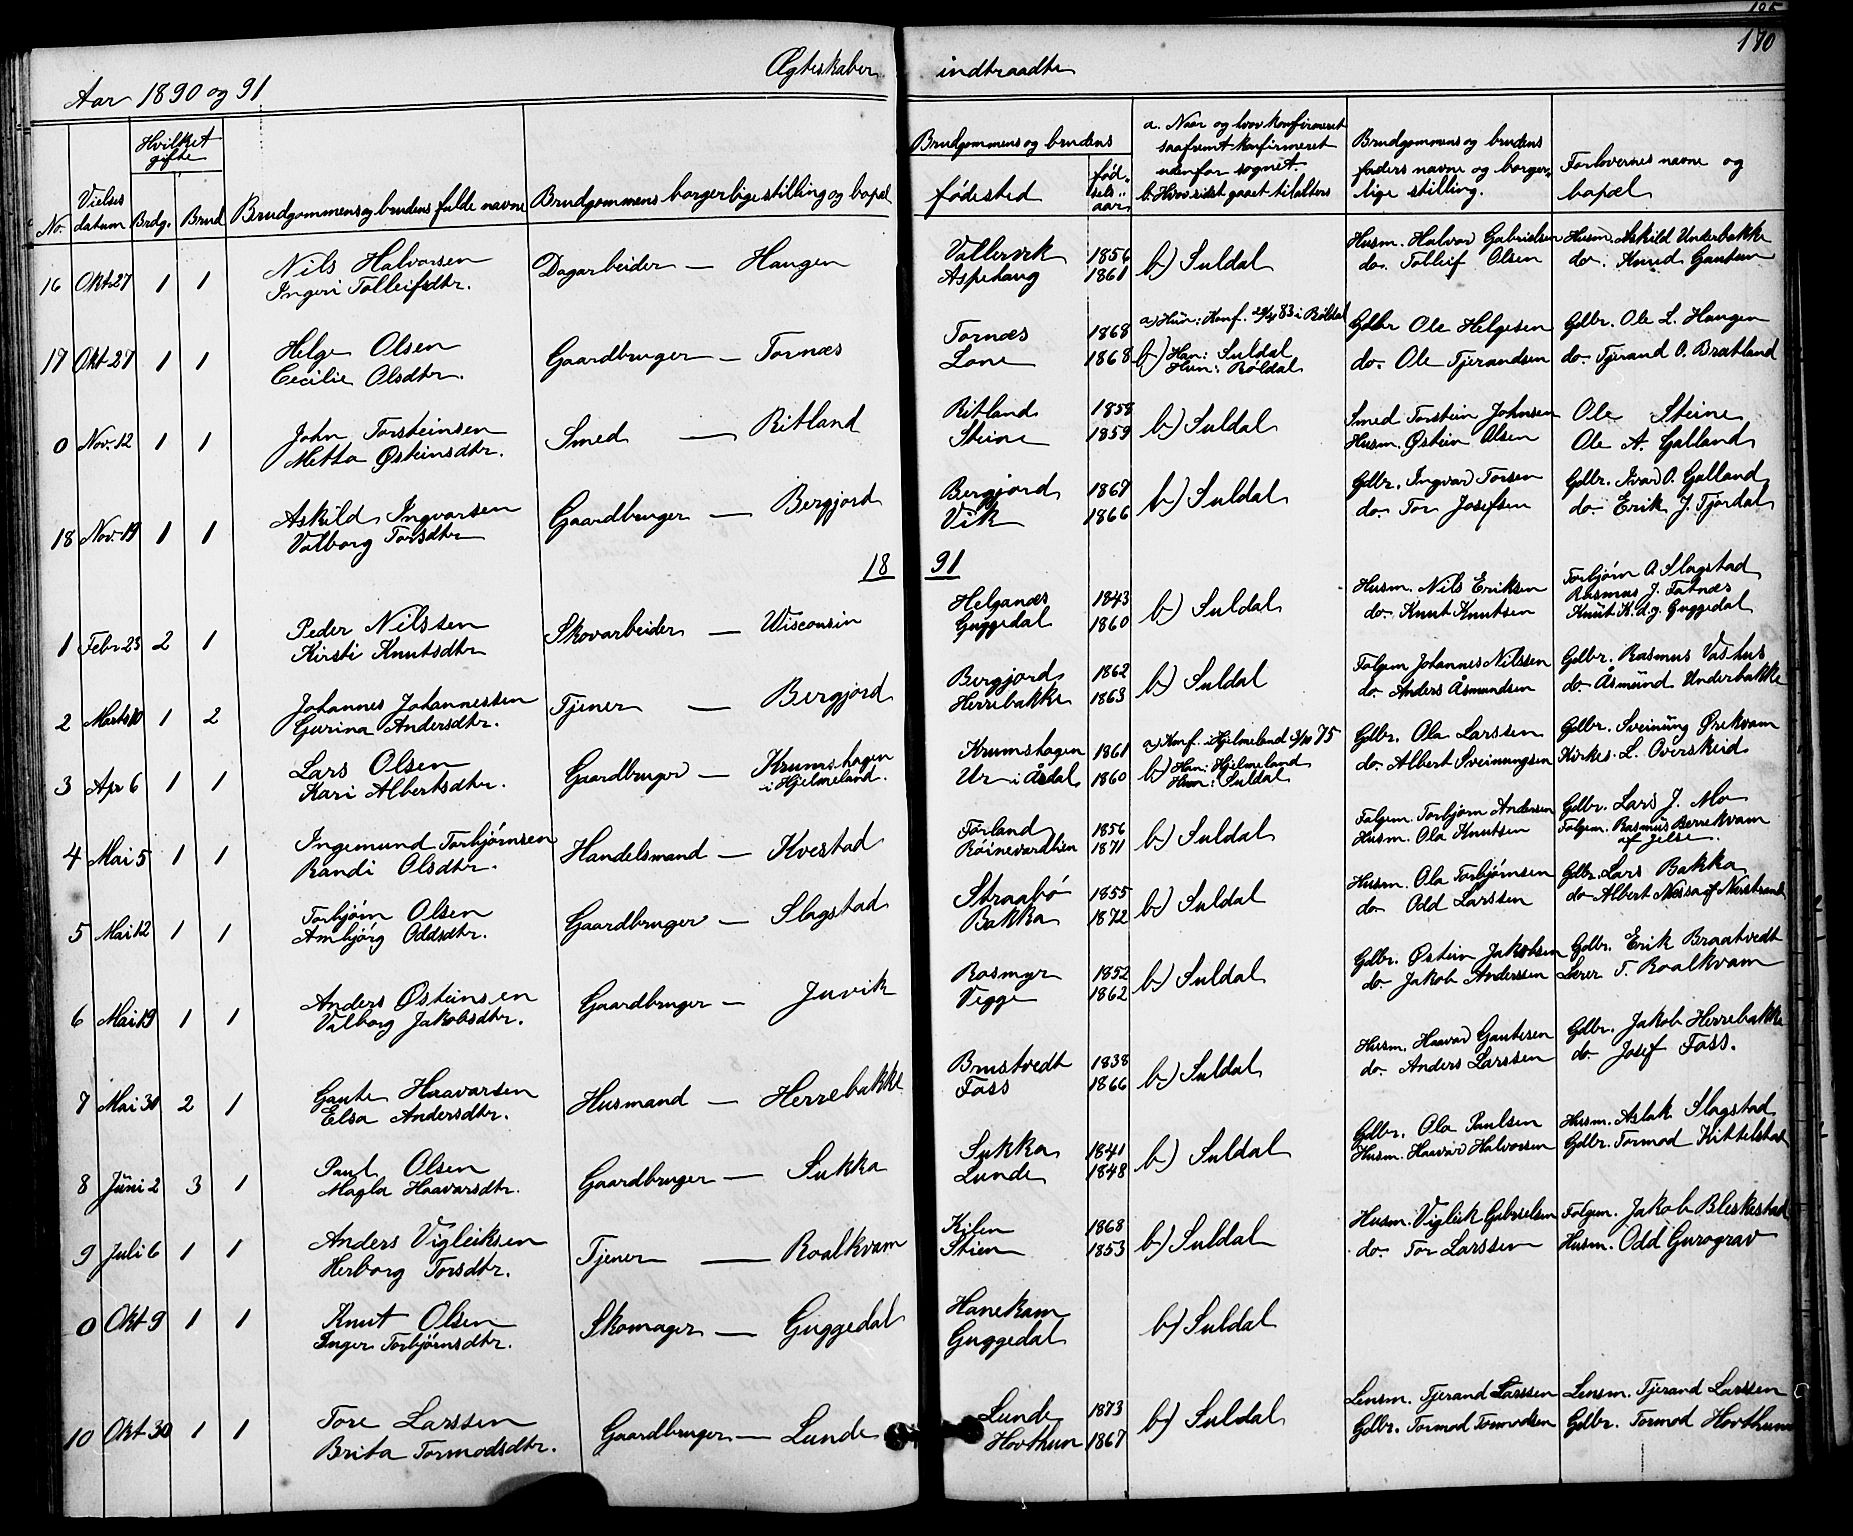 185
180
Ægteskaber indtraadte
Aar 1890 og 91
No. Vielses datum Hvilket gifte Brdg. Brud Brudgommens og brudens fulde navne Brudgommens borgerlige stilling og bopæl Brudgommens og brudens fødested fødselsaar a. Naar og hvor konfirmeret saafremt konfirmeret udenfor sognet. b. Hvor sidst gaaet til alters Brudgommens og brudens faders navne og borgerlige stilling. Forlovernes navne og bopæl
16 Okt 27 1 1 Nils Halvorsen Dagarbeider — Haugen Vallervik 1856 b) Suldal Husm. Halvor Gabrielsen Husm. Askild Underbakke
Ingeri Tolleifsdtr. Aspehaug 1861 do. Tolleif Olsen do. Knud Gautun
17 Okt 27 1 1 Helge Olsen Gaardbruger — Tornæs Tornæs 1868 a) Hun: Konf. 29/4 83 i Røldal Gdbr Ole Helgesen Gdbr. Ole L. Haugen
Cecilie Olsdtr. Lone 1868 b) Han: Suldal Hun: Røldal do. Ole Tjerandsen do. Tjerand O. Bratland
0 Nov. 12 1 1 John Torsteinsen Smed — Ritland Ritland 1858 b) Suldal Smed Torstein Johnsen Ole Steine
Metta Østeinsdtr. Steine 1859 Husm. Østein Olsen Ole A. Galland
18 Nov. 19 1 1 Askild Ingvarsen Gaardbruger — Bergjord Bergjord 1867 b) Suldal Gdbr. Ingvar Torsen Gdbr. Ivar O. Galland
Valborg Torsdtr Vik 1866 do. Tor Josefsen do. Erik J. Tjørdal
18 91
1 Febr 23 2 1 Peder Nilssen Skovarbeider — Wisconsin Helganæs 1843 b) Suldal Husm. Nils Eriksen Torbjørn A Slagstad
Rasmus J. Fatnæs
Kirsti Knutsdtr Guggedal 1860 do. Knut Knutsen Knut K. d.y. Guggedal
2 Marts 10 1 2 Johannes Johannessen Tjener — Bergjord Bergjord 1862 b) Suldal Folgem Johannes Nilssen Gdbr. Rasmus Vashus
Gurina Andersdtr. Herrebakke 1863 do. Anders Åsmundsen do. Åsmund Underbakke
3 Apr 6 1 1 Lars Olsen Gaardbruger — Krumshagen i Hjelmeland. Krumshagen 1861 a) Konf. i Hjelmeland 3/10 75 Gdbr. Ola Larssen Gdbr. Sveinung Ørekvam
Kari Albertsdtr. Ur i Åsdal 1860 b) Han: Hjelmeland Hun: Suldal do. Albert Sveinungsen Kirkes. L. Overskeid
4 Mai 5 1 1 Ingemund Torbjørnsen Handelsmand — Kvestad Førland 1856 b) Suldal Folgem. Torbjørn Andersen Gdbr. Lars J. Mo
Randi Olsdtr. Røinevardlien 1871 Husm. Ola Knutsen Folgem. Rasmus Berrekvam af Jelse.
5 Mai 12 1 1 Torbjørn Olsen Gaardbruger — Slagstad Straabø 1855 b) Suldal Husm. Ola Torbjørnsen Gdbr. Lars Bakka
Ambjørg Oddsdtr. Bakka 1872 do. Odd Larssen do. Albert Nessa af Nerstrand
6 Mai 19 1 1 Anders Østeinsen Gaardbruger — Juvik Rosmyr 1852 b) Suldal Gdbr. Østein Jakobsen Gdbr. Erik Braatvedt
Valborg Jakobsdtr. Vegge 1862 do. Jakob Andersen Lærer T. Roalkvam
7 Mai 30 2 1 Gaute Haavarsen Husmand — Herrebakke Brustvedt 1838 b) Suldal Husm. Haavar Gautesen Gdbr. Jakob Herrebakke
Elsa Andersdtr. Foss 1866 do. Anders Larssen do. Josef Foss.
8 Juni 2 3 1 Paul Olsen Gaardbruger — Sukka Sukka 1841 b) Suldal Gdbr. Ola Paulsen Husm. Aslak Slagstad
Magla Haavarsdtr. Lunde 1848 Husm. Haavar Halvorsen Gdbr. Tormod Kittelstad
9 Juli 6 1 1 Anders Vigleiksen Tjener — Roalkvam Kilen 1868 b) Suldal Husm. Vigleik Gabrielsen Folgem. Jakob Bleskestad
Herborg Torsdtr. Stien 1853 do. Tor Larssen Husm. Odd Gurograv
0 Okt 9 1 1 Knut Olsen Skomager — Guggedal Hanekam b) Suldal
Inger Torbjørnsdtr. Guggedal
10 Okt 30 1 1 Tore Larssen Gaardbruger — Lunde Lunde 1873 b) Suldal Lensm. Tjerand Larssen Lensm. Tjerand Larssen
Brita Tormodsdtr. Hovthun 1867 Gdbr. Tormod Tormodsen Gdbr. Tormod Hovthun